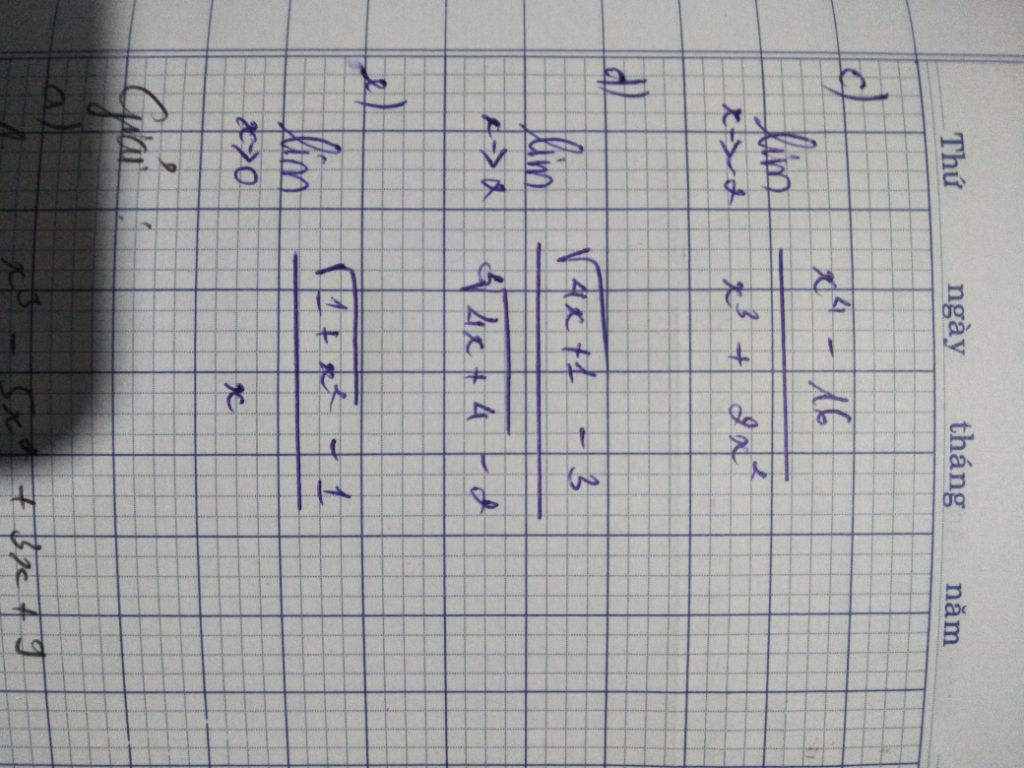 Thứ ngày tháng năm
c) lim x→-2 (x⁴ - 16)/(x³ + 2x²)
d) lim x→2 (√(4x+1) - 3)/(∛(4x + 4) - 2)
e) lim x→0 (√(1 + x²) - 1)/x
Giải:
a)
x³ - 5x² + 3x + 9